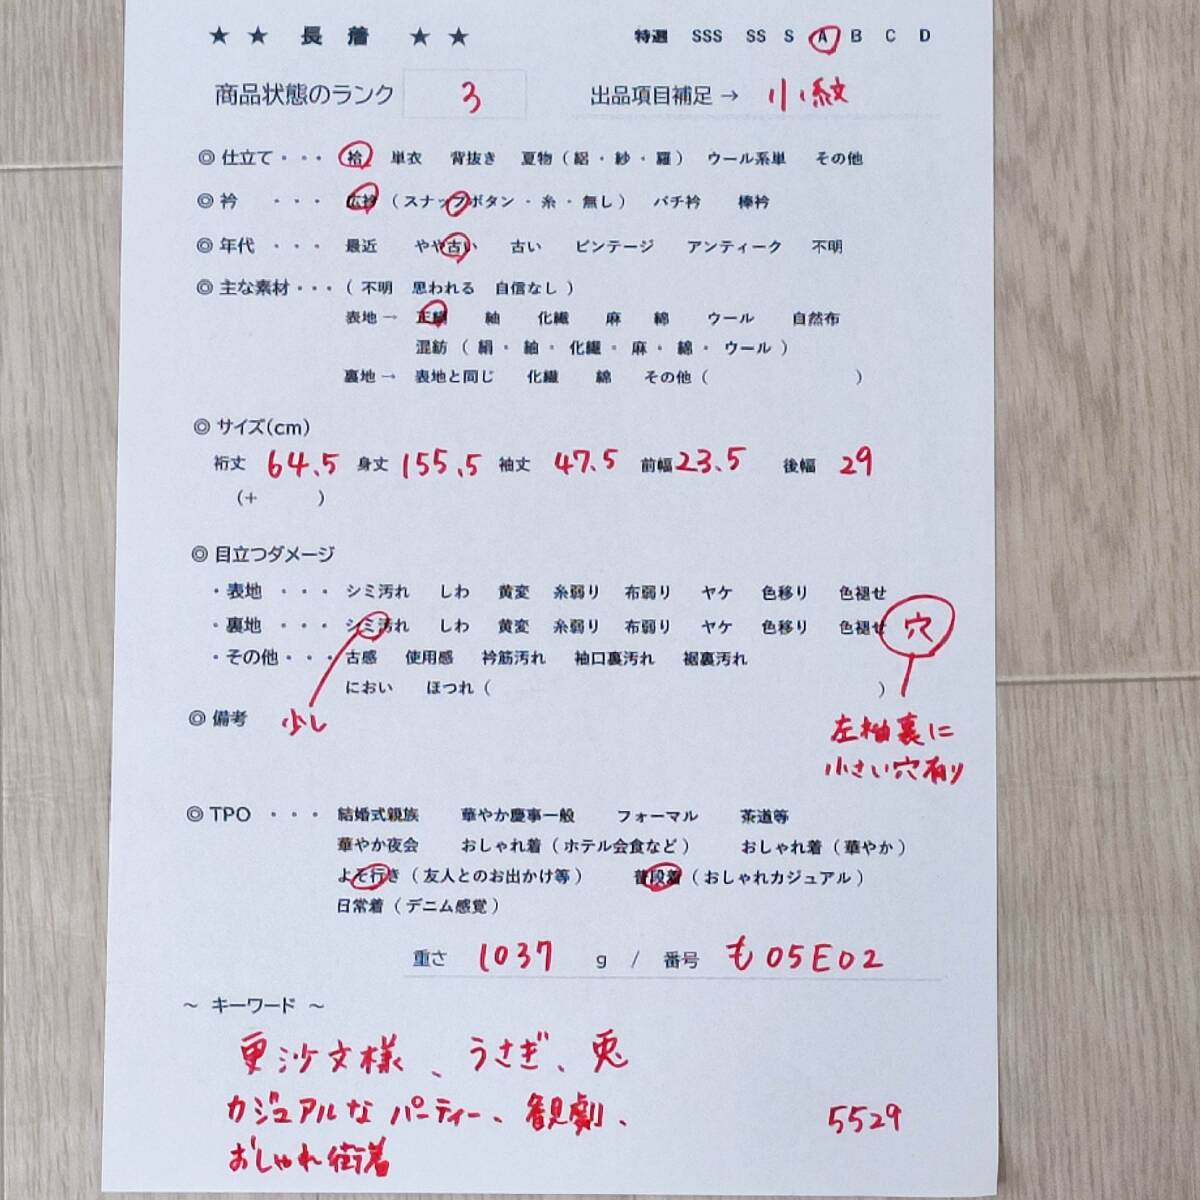 ★ ★ 長 着 ★ ★ 特選 SSS SS S A B C D
商品状態のランク 3 出品項目補足 → 小紋
◎ 仕立て ・・・ 袷 単衣 背抜き 夏物（絽・紗・羅） ウール系単 その他
◎ 衿 ・・・ 広衿（スナップボタン・糸・無し） バチ衿 棒衿
◎ 年代 ・・・ 最近 やや古い 古い ビンテージ アンティーク 不明
◎ 主な素材・・・（ 不明 思われる 自信なし ）
表地 → 正絹 紬 化繊 麻 綿 ウール 自然布
混紡（ 絹・紬・化繊・麻・綿・ウール ）
裏地 → 表地と同じ 化繊 綿 その他（ ）
◎ サイズ(cm)
裄丈 64.5 身丈 155.5 袖丈 47.5 前幅 23.5 後幅 29
(+ )
◎ 目立つダメージ
・表地 ・・・ シミ汚れ しわ 黄変 糸弱り 布弱り ヤケ 色移り 色褪せ
・裏地 ・・・ シミ汚れ しわ 黄変 糸弱り 布弱り ヤケ 色移り 色褪せ 穴
・その他・・・ 古感 使用感 衿筋汚れ 袖口裏汚れ 裾裏汚れ
におい ほつれ（ ）
◎ 備考 少し
左袖裏に
小さい穴有り
◎ TPO ・・・ 結婚式親族 華やか慶事一般 フォーマル 茶道等
華やか夜会 おしゃれ着（ホテル会食など） おしゃれ着（華やか）
よそ行き（友人とのお出かけ等） 普段着（おしゃれカジュアル）
日常着（デニム感覚）
重さ 1037 g / 番号 も05E02
～ キーワード ～
更沙文様、うさぎ、兎
カジュアルな パーティー、観劇、
おしゃれ街着
5529